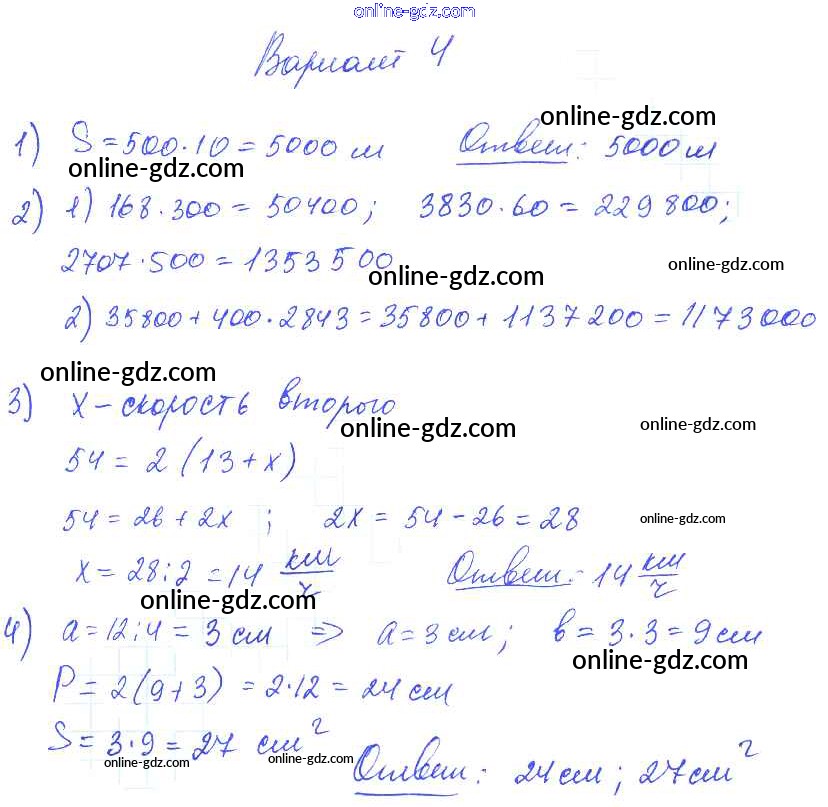 online-gdz.com
Вариант 4
online-gdz.com
1) S = 500 · 10 = 5000 м Ответ: 5000 м
online-gdz.com
2) 1) 168 · 300 = 50400; 3830 · 60 = 229800;
2707 · 500 = 1353500
online-gdz.com online-gdz.com
2) 35800 + 400 · 2843 = 35800 + 1137200 = 1173000
online-gdz.com
3) x – скорость второго
online-gdz.com online-gdz.com
54 = 2 (13 + x)
54 = 26 + 2x ; 2x = 54 – 26 = 28 online-gdz.com
x = 28 : 2 = 14 км/ч Ответ: 14 км/ч
online-gdz.com
4) a = 12 : 4 = 3 см ⇒ a = 3 см; в = 3 · 3 = 9 см
online-gdz.com
P = 2(9 + 3) = 2 · 12 = 24 см
S = 3 · 9 = 27 см²
online-gdz.com online-gdz.com
Ответ: 24 см; 27 см²